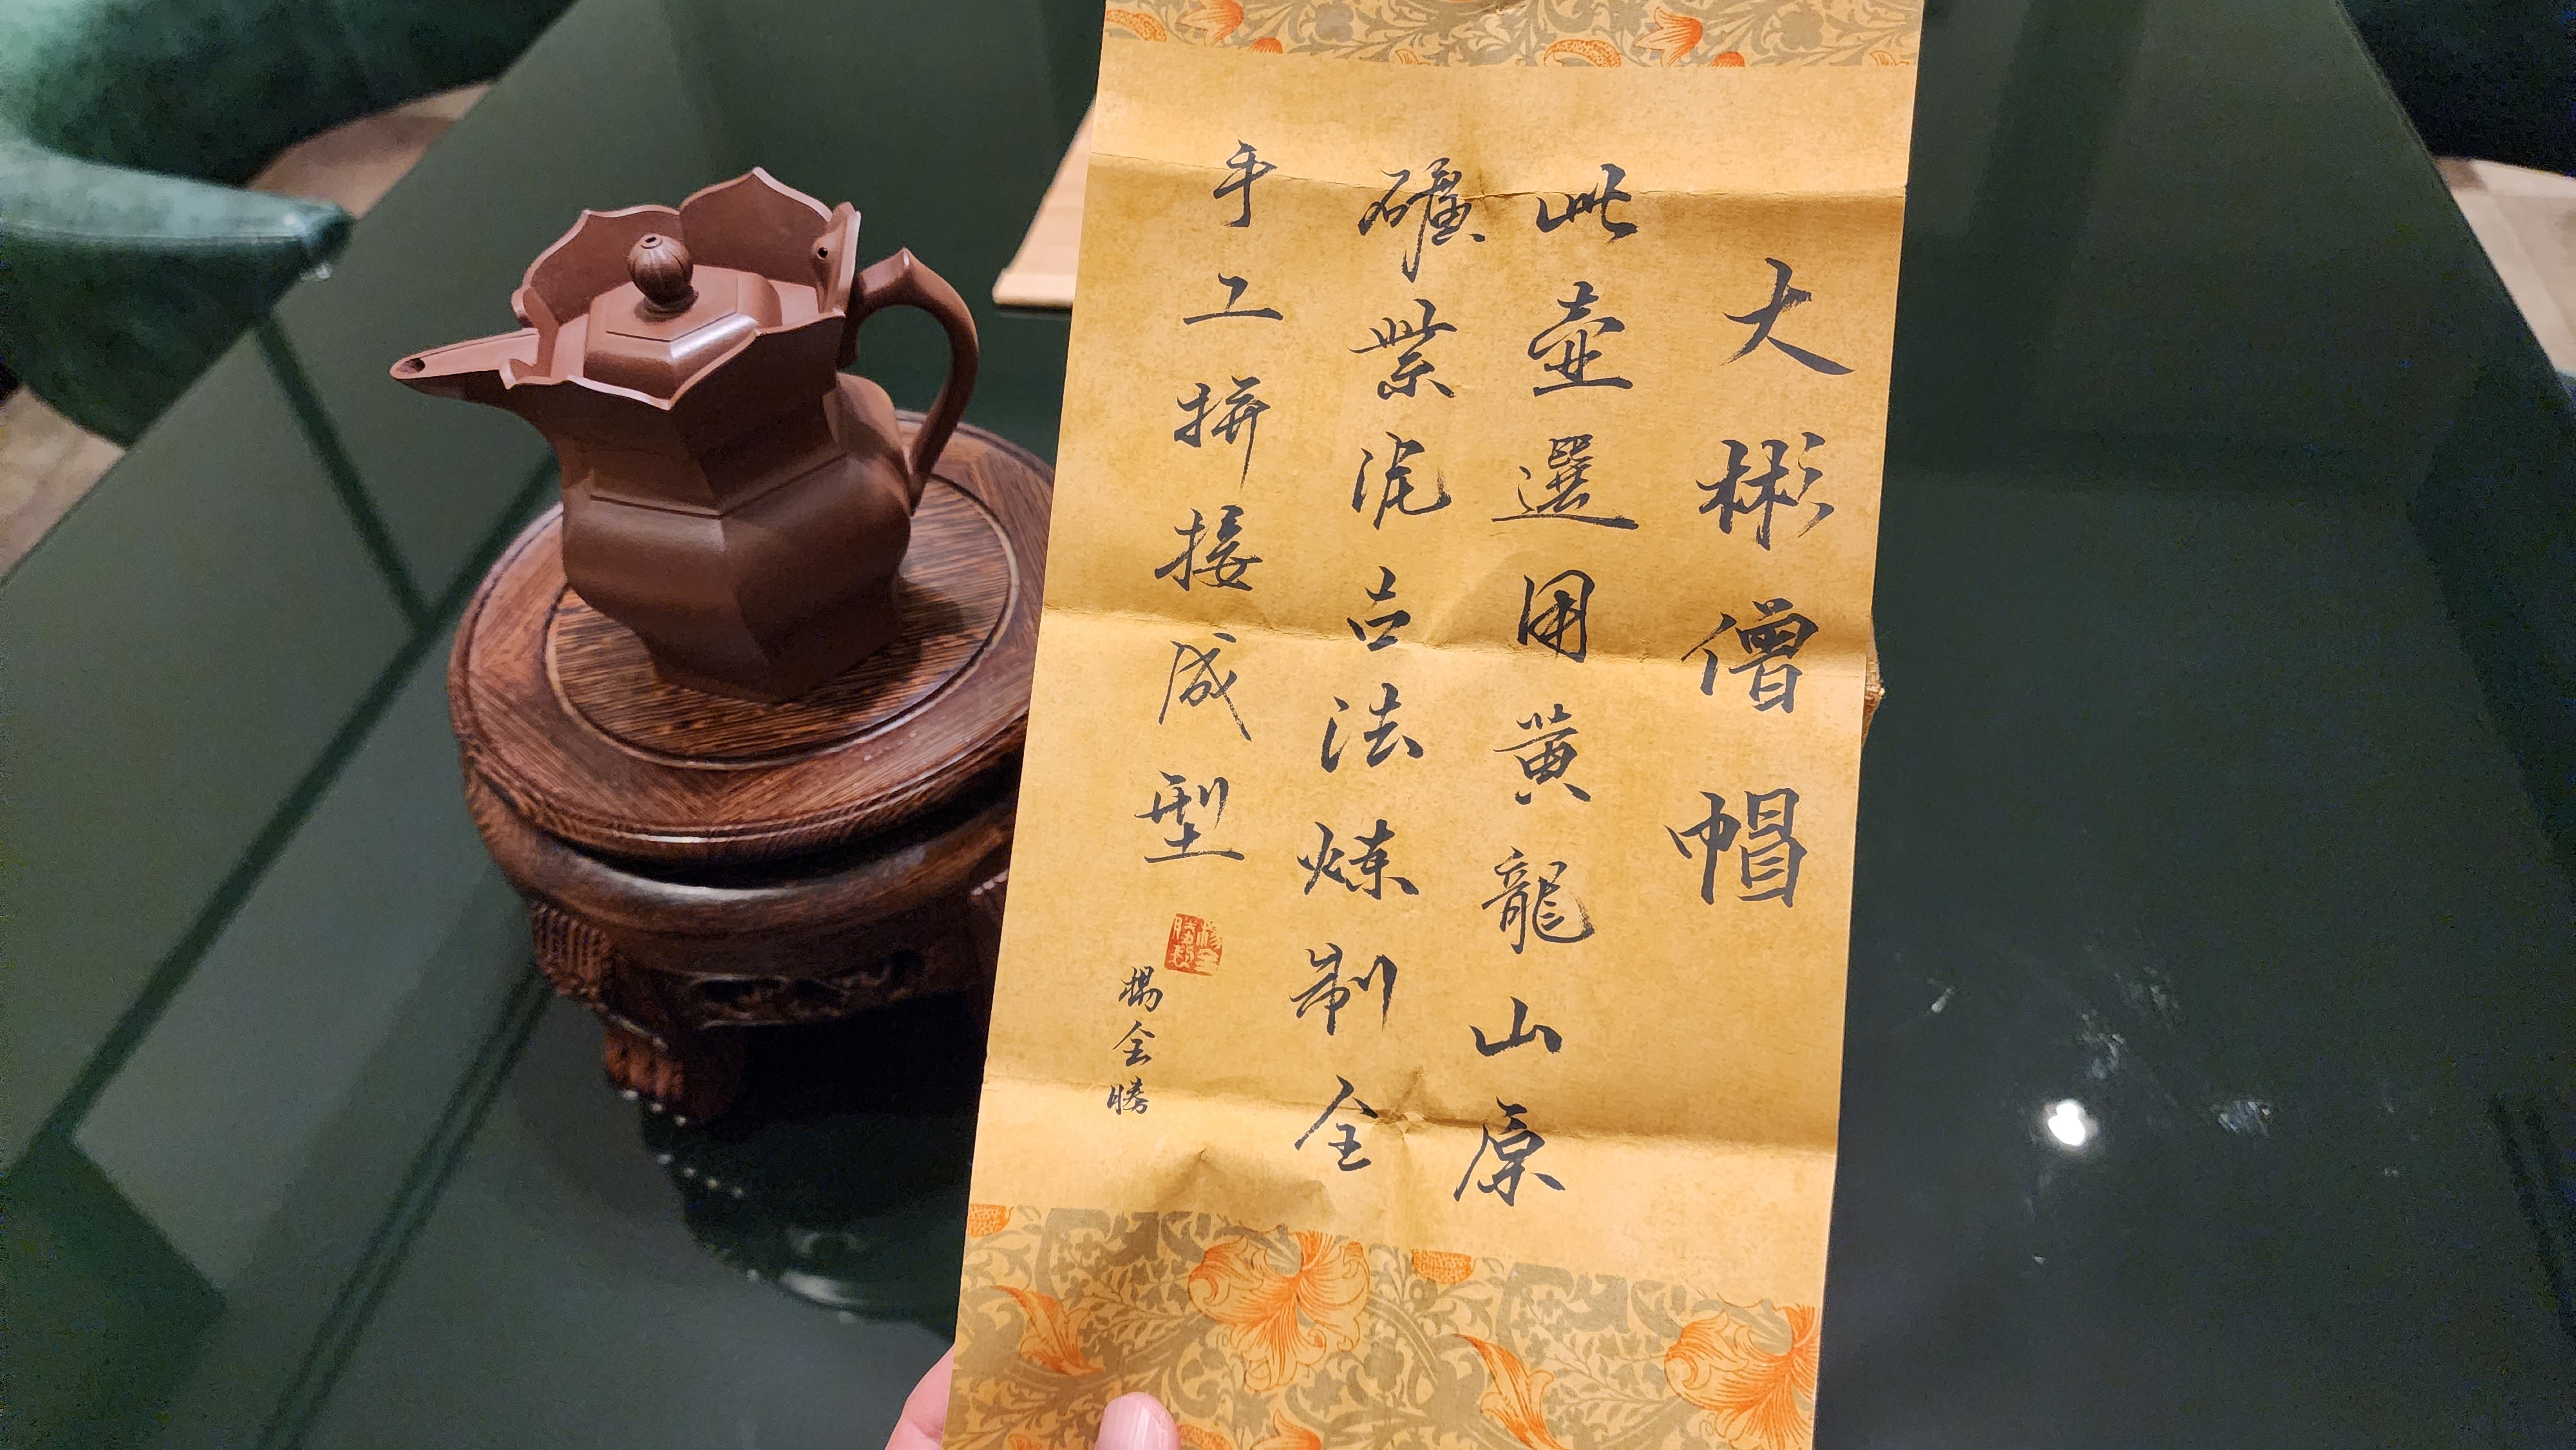 大彬僧帽
此壺選用黄龍山原
礦紫泥古法煉制全
手工拼接成型
楊全勝